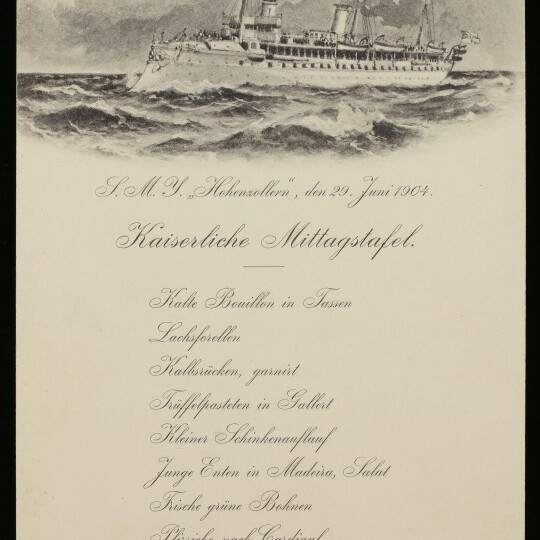 S. M. Y. „Hohenzollern“, den 29. Juni 1904.
Kaiserliche Mittagstafel.
Kalte Bouillon in Tassen
Lachsforellen
Kalbsrücken, garnirt
Trüffelpasteten in Gallert
Kleiner Schinkenauflauf
Junge Enten in Madeira, Salat
Frische grüne Bohnen
Pfirsiche nach Cardinal